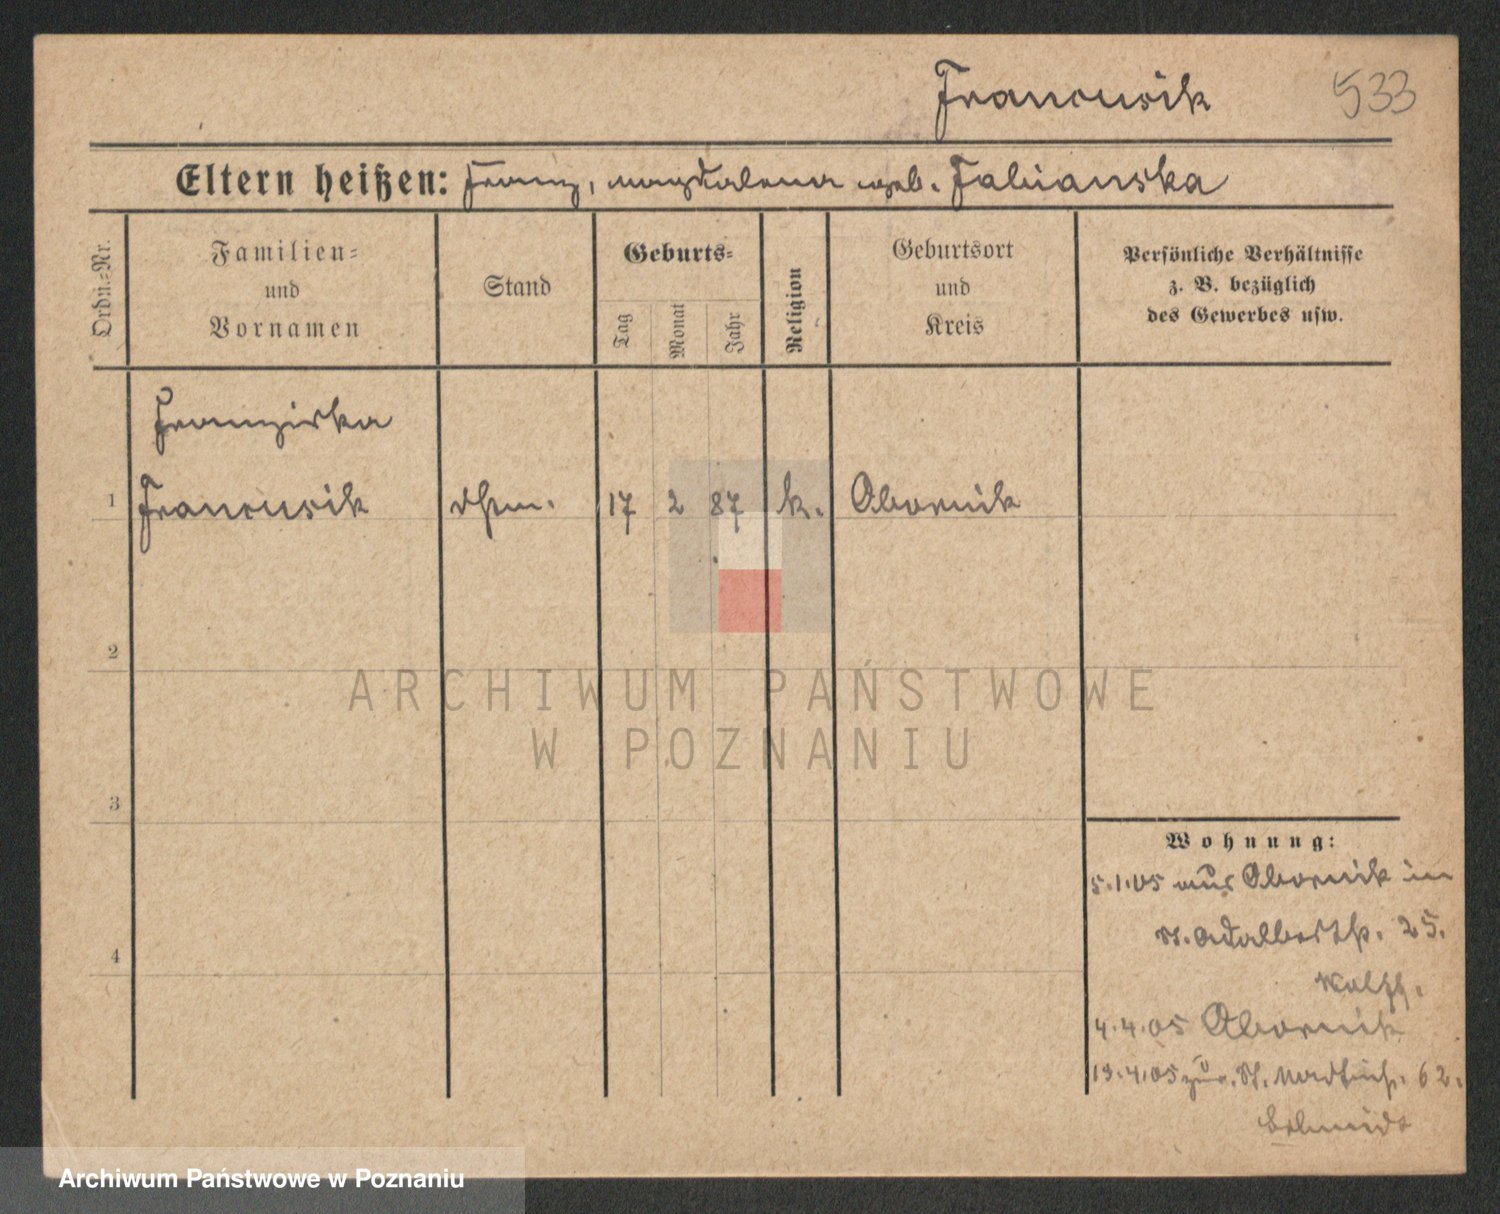 Francusik 533
Eltern heißen: Franz, Magdalena geb. Fabianska
Ordn.-Nr.
Familien-
und
Vornamen
Stand
Geburts-
Tag
Monat
Jahr
Religion
Geburtsort
und
Kreis
Persönliche Verhältnisse
z. B. bezüglich
des Gewerbes usw.
Franziska
1 Francusik 17 2 87 k. Obornik
2
3
4
Wohnung:
5.1.05 aus Obornik in
St. Adalbertstr. 25.
4.4.05 Obornik
19.4.05 zur. St. 62.
Schmidt
ARCHIWUM PAŃSTWOWE
W POZNANIU
Archiwum Państwowe w Poznaniu